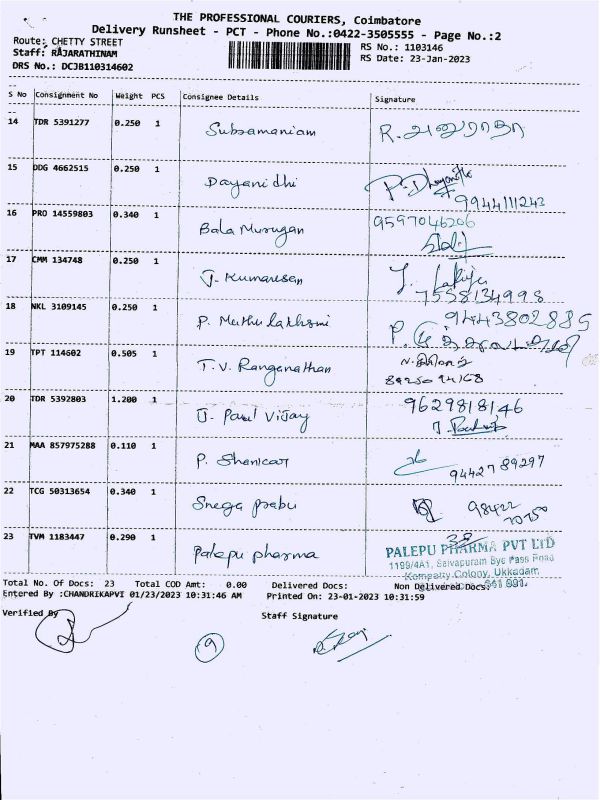 THE PROFESSIONAL COURIERS, Coimbatore
Delivery Runsheet - PCT - Phone No.:0422-3505555 - Page No.:2
Route: CHETTY STREET
RS No.: 1103146
Staff: RAJARATHINAM
RS Date: 23-Jan-2023
DRS No.: DCJB110314602
S No Consignment No Weight PCS Consignee Details Signature
14 TDR 5391277 0.250 1 Subramaniam R. அனுராதா
15 DDG 4662515 0.250 1 Dayanidhi
9944111243
16 PRO 14559803 0.340 1 Bala Murugan 9597046206
17 CMM 134748 0.250 1 J. Kumaresan
7558134998
18 NKL 3109145 0.250 1 P. Muthulakshmi 9443802885
19 TPT 114602 0.505 1 T.V. Ranganathan
89250 94168
20 TDR 5392803 1.200 1 J. Paul Vijay 9629818146
21 MAA 857975288 0.110 1 P. Shankar 9442789297
22 TCG 50313654 0.340 1 Snega prabu 98422
23 TVM 1183447 0.290 1 Palepu pharma
PALEPU PHARMA PVT LTD
1199/4A1, Selvapuram Bye Pass Road
Kompatty Colony, Ukkadam,
641 001.
Total No. Of Docs: 23 Total COD Amt: 0.00 Delivered Docs: Non Delivered Docs:
Entered By :CHANDRIKAPVI 01/23/2023 10:31:46 AM Printed On: 23-01-2023 10:31:59
Verified By Staff Signature
9